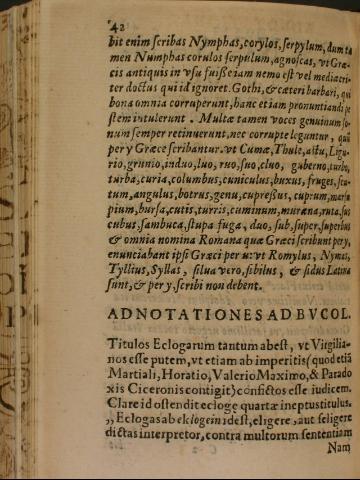 42
bit enim scribas Nymphas, corylos, serpylum, dum ta
men Numphas corulos serpulum, agnoscas, vt Græ-
cis antiquis in vsu fuisse iam nemo est vel mediocri-
ter doctus qui id ignoret. Gothi, & cæteri barbari, qui
bona omnia corruperunt, hanc etiam pronuntiandi pe
stem intulerunt. Multæ tamen voces genuinum so-
num semper retinuerunt, nec corrupte leguntur, quæ
per y Græce scribantur. vt Cumæ, Thule, astu, Ligu-
rio, grunio, induo, luo, ruo, suo, cluo, guberno, turbo,
turba, curia, columbus, cuniculus, buxus, fruges, scu-
tum, angulus, botrus, genu, cupressus, cuprum, marsu
pium, bursa, cutis, turris, cuminum, muræna, ruta, suc
cubus, sambuca, stupa fuga, duo, sub, super, superbus
& omnia nomina Romana quæ Græci scribunt per y,
enunciabant ipsi Græci per u: vt Romylus, Nymas,
Tyllius, Syllas, silua vero, sibilus, & sidus Latina
sunt, & per y scribi non debent.
ADNOTATIONES AD BVCOL.
Titulos Eclogarum tantum abest, vt Virgilia-
nos esse putem, vt etiam ab imperitis (quod etiā
Martiali, Horatio, Valerio Maximo, & Parado
xis Ciceronis contigit) confictos esse iudicem.
Clare id ostendit eclogæ quartæ ineptus titulus.
,, Eclogas ab eklogein id est, eligere, aut seligere
dictas interpretor, contra multorum sententiam
Nam